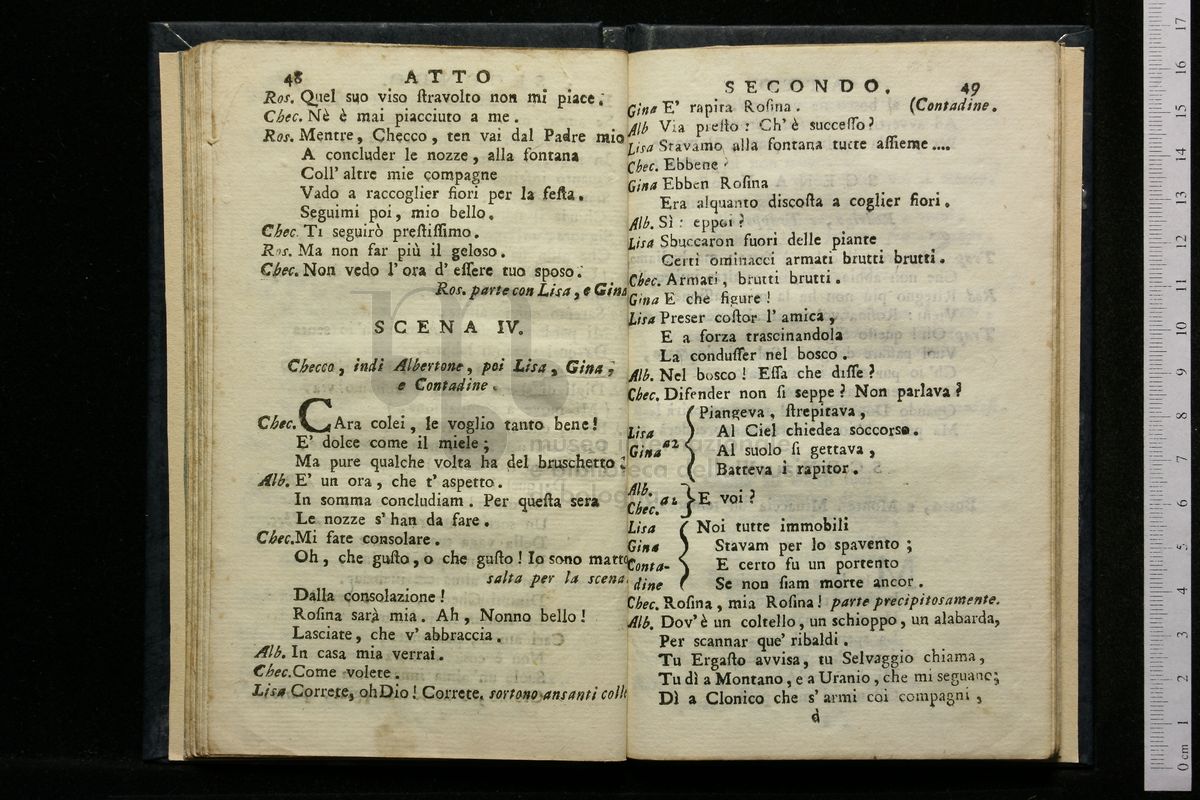 48 ATTO
Ros. Quel suo viso ſtravolto non mi piace.
Chec. Nè è mai piacciuto a me.
Ros. Mentre, Checco, ten vai dal Padre mio
A concluder le nozze, alla fontana
Coll' altre mie compagne
Vado a raccoglier fiori per la feſta.
Seguimi poi, mio bello.
Chec. Ti seguirò preſtiſſimo.
Ros. Ma non far più il geloso.
Chec. Non vedo l' ora d' eſſere tuo sposo.
Ros. parte con Lisa, e Gina
SCENA IV.
Checco, indi Albertone, poi Lisa, Gina,
e Contadine.
Chec. CAra colei, le voglio tanto bene!
E' dolce come il miele;
Ma pure qualche volta ha del bruschetto:
Alb. E' un ora, che t' aspetto.
In somma concludiam. Per queſta sera
Le nozze s' han da fare.
Chec. Mi fate consolare.
Oh, che guſto, o che guſto! Io sono matto
salta per la scena.
Dalla consolazione!
Rosina sarà mia. Ah, Nonno bello!
Lasciate, che v' abbraccia.
Alb. In casa mia verrai.
Chec. Come volete.
Lisa Correte, oh Dio! Correte. sortono ansanti colle
SECONDO. 49
Gina E' rapita Rosina. (Contadine.
Alb Via preſto: Ch' è succeſſo?
Lisa Stavamo alla fontana tutte aſſieme....
Chec. Ebbene?
Gina Ebben Rosina
Era alquanto discoſta a coglier fiori.
Alb. Sì: eppoi?
Lisa Sbuccaron fuori delle piante
Certi ominacci armati brutti brutti.
Chec. Armati, brutti brutti.
Gina E che figure!
Lisa Preser coſtor l' amica,
E a forza trascinandola
La conduſſer nel bosco.
Alb. Nel bosco! Eſſa che diſſe?
Chec. Difender non si seppe? Non parlava?
Piangeva, ſtrepitava,
Lisa Al Ciel chiedea soccorso.
Gina a2 Al suolo si gettava,
Batteva i rapitor.
Alb.
Chec. a2 E voi?
Lisa Noi tutte immobili
Gina Stavam per lo spavento;
Conta- E certo fu un portento
dine Se non siam morte ancor.
Chec. Rosina, mia Rosina! parte precipitosamente.
Alb. Dov' è un coltello, un schioppo, un alabarda,
Per scannar que' ribaldi.
Tu Ergaſto avvisa, tu Selvaggio chiama,
Tu dì a Montano, e a Uranio, che mi seguano;
Dì a Clonico che s' armi coi compagni,
d
museo internazionale
0 cm 1 2 3 4 5 6 7 8 9 10 11 12 13 14 15 16 17